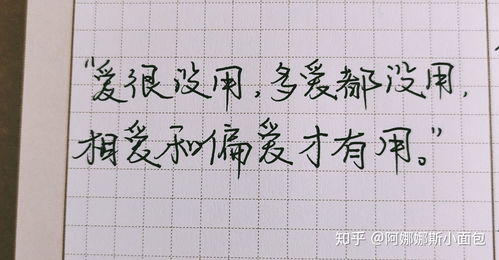 “爱很没用，多爱都没用，
相爱和偏爱才有用。”
知乎 @阿娜娜斯小面包